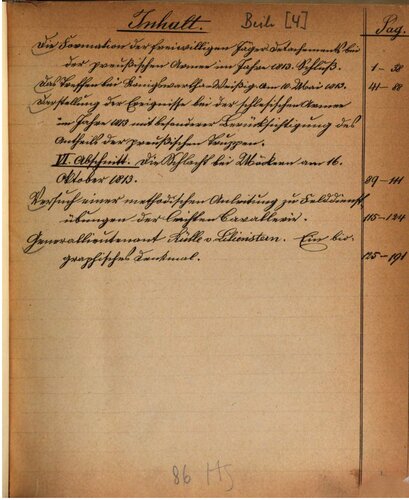 Inhalt. Beih [4] Pag.
Die Formation der freiwilligen Jäger-Detachements bei
der preußischen Armee im Jahre 1813. Schluß. 1-38
Das Treffen bei Königswartha-Weißig. Am 19 Mai 1813. 41-88
Darstellung der Ereignisse bei der schlesischen Armee
im Jahre 1813 mit besonderer Berücksichtigung des
Antheils der preußischen Truppen.
VI Abschnitt. Die Schlacht bei Möckern am 16.
Oktober 1813. 89-111
Versuch einer methodischen Anleitung zu Felddienst-
übungen der leichten Cavallerie. 115-124
Generallieutenant Rühle v. Lilienstern. Ein bio-
graphisches Denkmal. 125-191
86 HJ